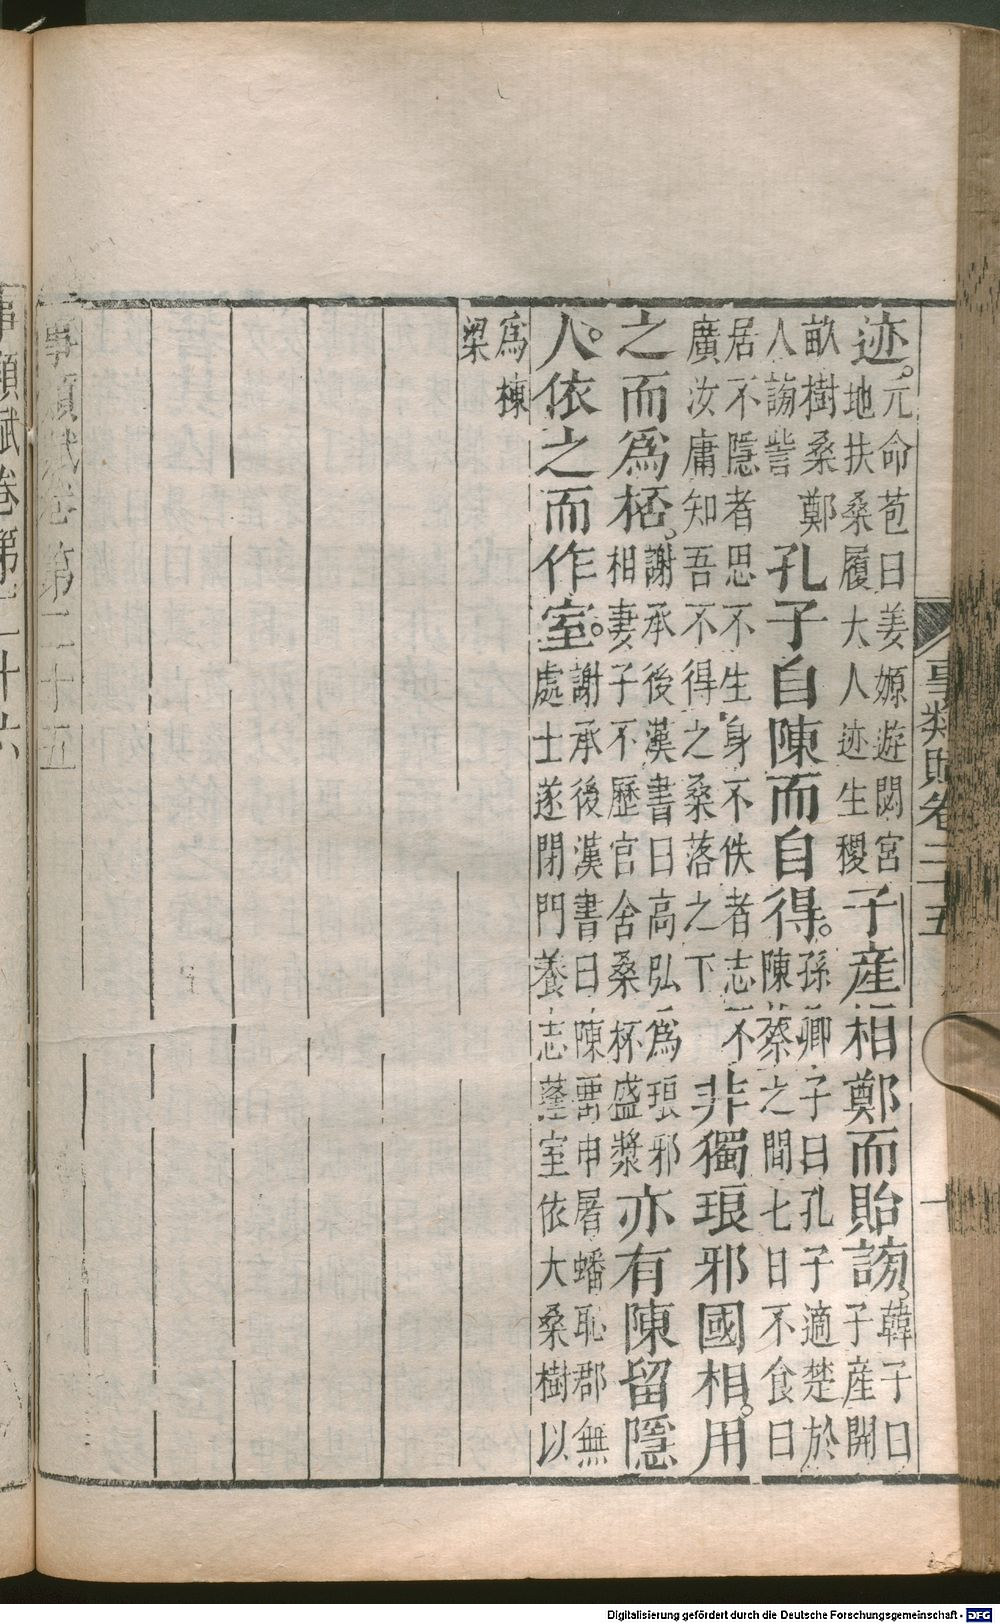 事類賦卷二十五
十
迹。元命苞曰姜嫄遊閟宮地扶桑履大人迹生稷子產相鄭而貽謗。韓子曰子產開
畝樹桑鄭人謗訾孔子自陳而自得。孫卿子曰孔子適楚於陳蔡之間七日不食曰
居不隱者思不生身不佚者志不廣汝庸知吾不得之桑落之下非獨琅邪國相。用
之而爲桮。謝承後漢書曰高弘爲琅邪相妻子不歷官舍桑杯盛漿亦有陳留隱
人。依之而作室。謝承後漢書曰陳留申屠蟠恥郡無處士遂閉門養志蓬室依大桑樹以
爲棟梁
事類賦卷第二十五
事類賦卷第二十六
Digitalisierung gefördert durch die Deutsche Forschungsgemeinschaft - DFG